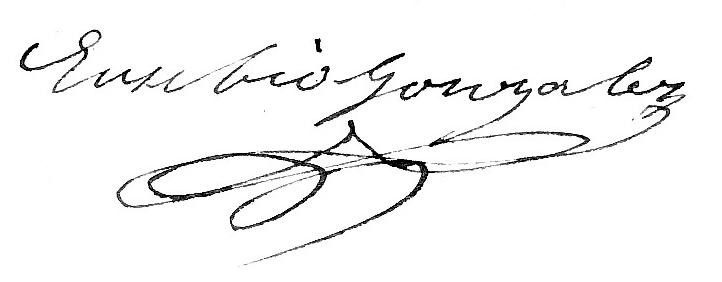 Eusebio Gonzalez